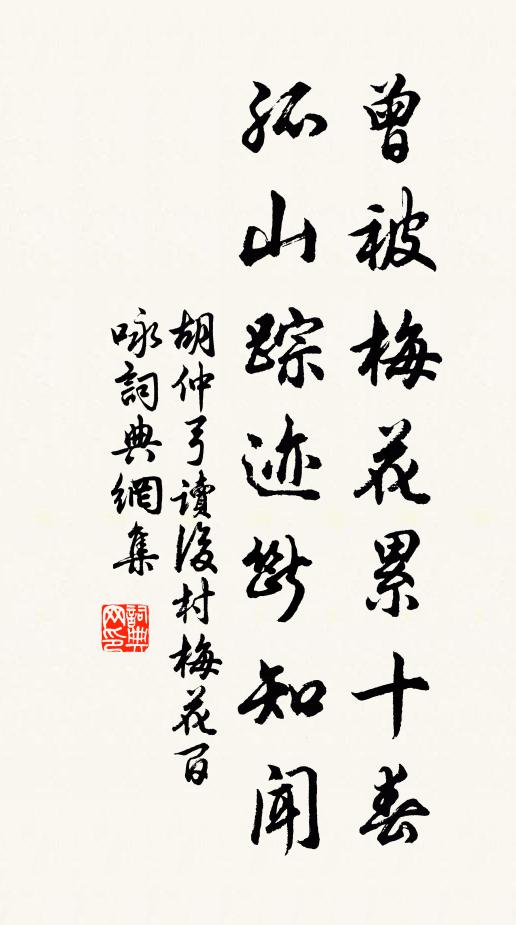 曾被梅花累十春
孤山踪迹断知闻
胡仲弓讀後村梅花百
咏詞典網集
詞典
网印